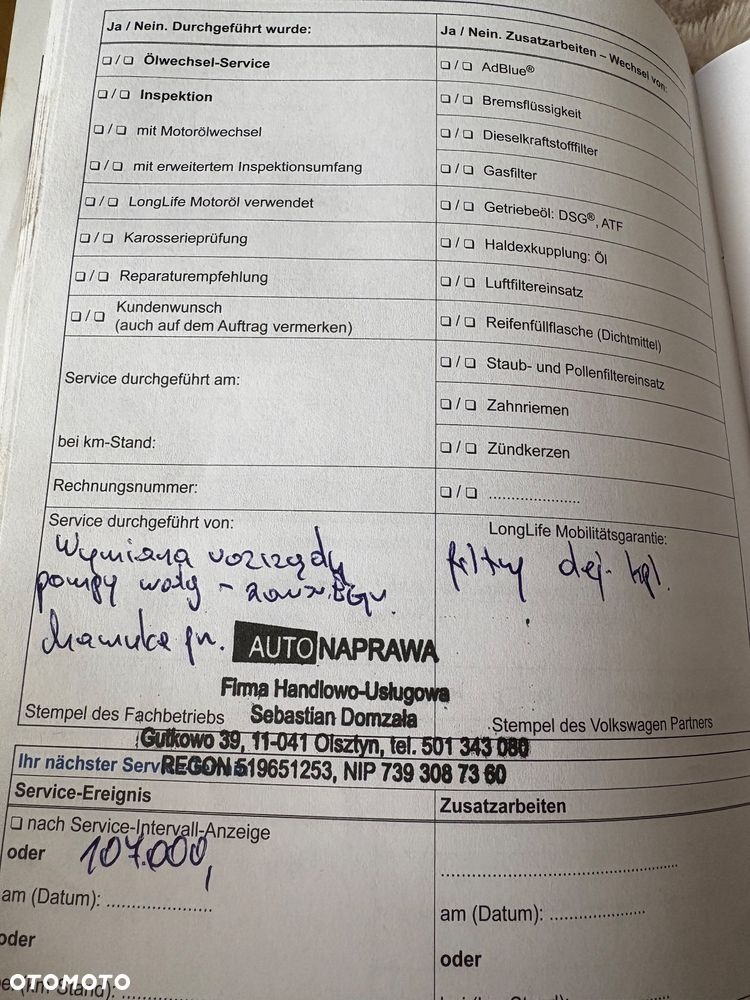 Ja / Nein. Durchgeführt wurde:
❏ / ❏ Ölwechsel-Service
❏ / ❏ Inspektion
❏ / ❏ mit Motorölwechsel
❏ / ❏ mit erweitertem Inspektionsumfang
❏ / ❏ LongLife Motoröl verwendet
❏ / ❏ Karosserieprüfung
❏ / ❏ Reparaturempfehlung
❏ / ❏ Kundenwunsch
(auch auf dem Auftrag vermerken)
Service durchgeführt am:
bei km-Stand:
Rechnungsnummer:
Ja / Nein. Zusatzarbeiten – Wechsel von:
❏ / ❏ AdBlue®
❏ / ❏ Bremsflüssigkeit
❏ / ❏ Dieselkraftstofffilter
❏ / ❏ Gasfilter
❏ / ❏ Getriebeöl: DSG®, ATF
❏ / ❏ Haldexkupplung: Öl
❏ / ❏ Luftfiltereinsatz
❏ / ❏ Reifenfüllflasche (Dichtmittel)
❏ / ❏ Staub- und Pollenfiltereinsatz
❏ / ❏ Zahnriemen
❏ / ❏ Zündkerzen
❏ / ❏ .....................
Service durchgeführt von:
Wymiana rozrządy
pompy wody -
AUTO NAPRAWA
Firma Handlowo-Usługowa
Sebastian Domzała
Gutkowo 39, 11-041 Olsztyn, tel. 501 343 080
REGON 519651253, NIP 739 308 73 60
Stempel des Fachbetriebs
LongLife Mobilitätsgarantie:
filtry olej. kpl.
Stempel des Volkswagen Partners
Ihr nächster
Service-Ereignis
❏ nach Service-Intervall-Anzeige
oder 107.000,
am (Datum): .....................
oder
km Stand): .....................
Zusatzarbeiten
.....................
am (Datum): .....................
oder
OTOMOTO